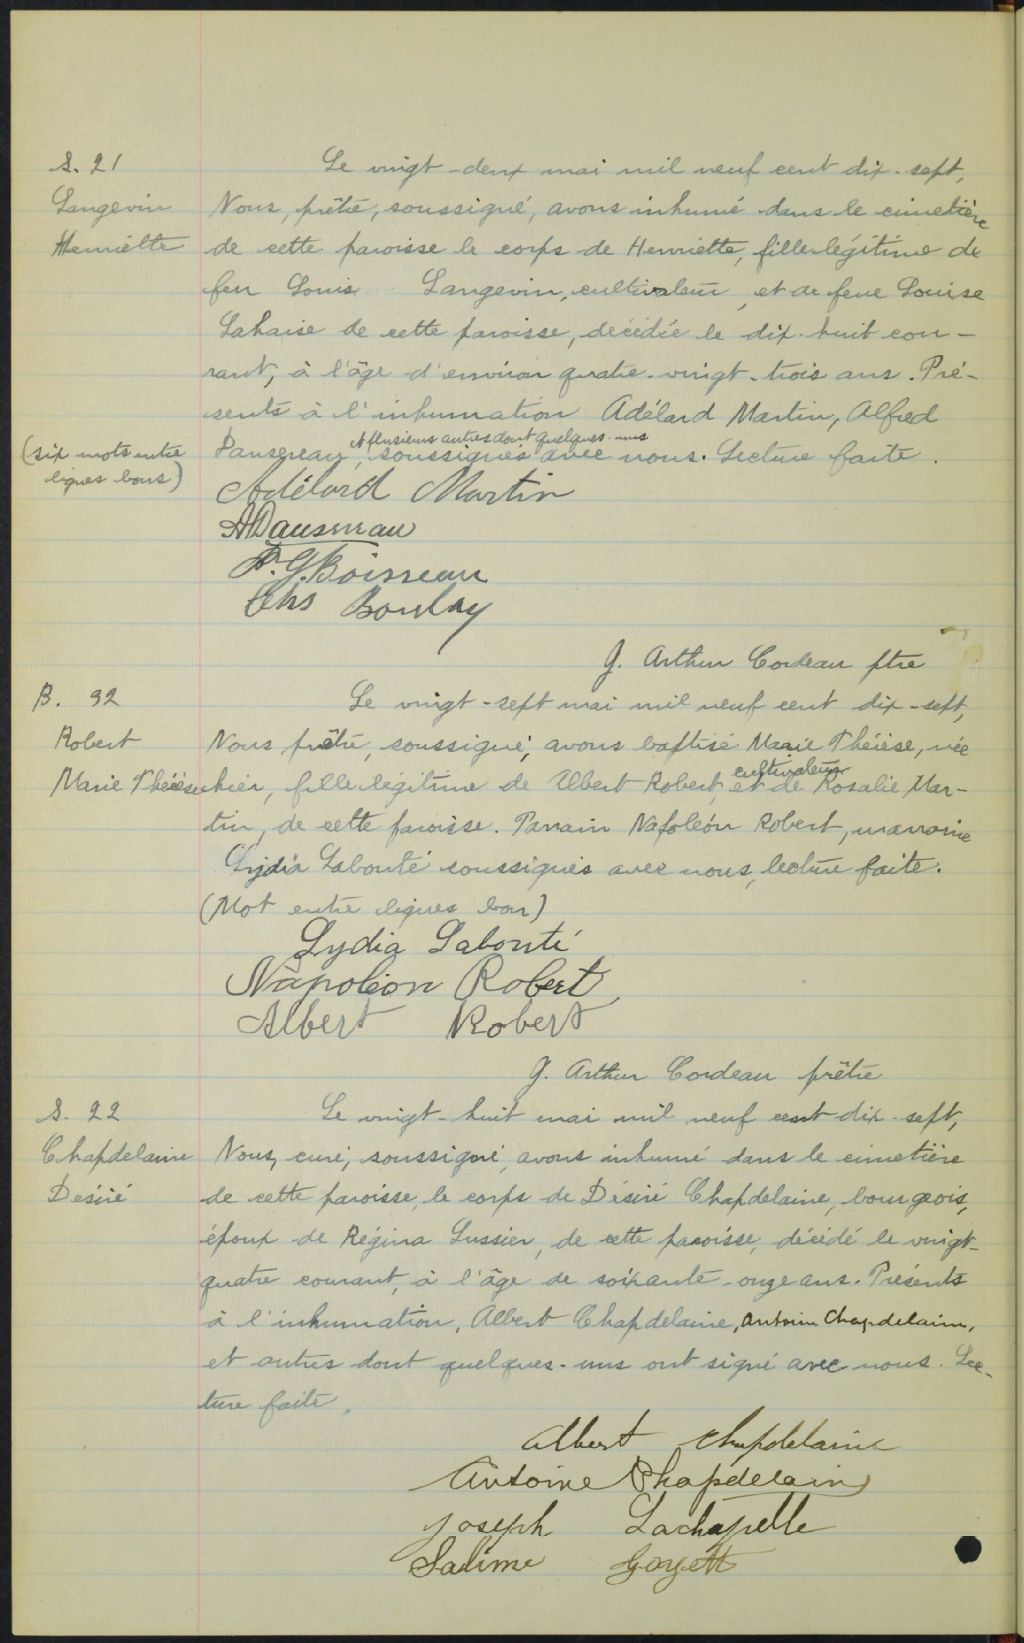 S. 21
Le vingt-deux mai mil neuf cent dix-sept,
Langevin
Nous, prêtre, soussigné, avons inhumé dans le cimetière
Henriette
de cette paroisse le corps de Henriette, fille légitime de
feu Louis Langevin, cultivateur, et de feue Louise
Lahaise de cette paroisse, décédée le dix-huit cou-
rant, à l'âge d'environ quatre-vingt-trois ans. Pré-
sents à l'inhumation Adélard Martin, Alfred
(six mots entre
lignes bons)
et plusieurs autres dont quelques-uns
Dansereau, soussignés avec nous. Lecture faite.
Adélard Martin
A Dansereau
P. G. Boisseau
Chs Boulay
J. Arthur Cordeau ptre
B. 32
Le vingt-sept mai mil neuf cent dix-sept,
Robert
Nous prêtre, soussigné, avons baptisé Marie Thérèse, née
Marie Thérèse
cultivateur
hier, fille légitime de Albert Robert, et de Rosalie Mar-
tin, de cette paroisse. Parrain Napoléon Robert, marraine
Lydia Labonté soussignés avec nous, lecture faite.
(Mot entre lignes bon)
Lydia Labonté
Napoléon Robert
Albert Robert
J. Arthur Cordeau prêtre
S. 22
Le vingt-huit mai mil neuf cent dix-sept,
Chapdelaine
Nous, curé, soussigné, avons inhumé dans le cimetière
Désiré
de cette paroisse, le corps de Désiré Chapdelaine, bourgeois,
époux de Régina Lussier, de cette paroisse, décédé le vingt-
quatre courant, à l'âge de soixante-onze ans. Présents
à l'inhumation, Albert Chapdelaine, Antoine Chapdelaine,
et autres dont quelques-uns ont signé avec nous. Lec-
ture faite.
Albert Chapdelaine
Antoine Chapdelaine
Joseph Lachapelle
Salime Goyett